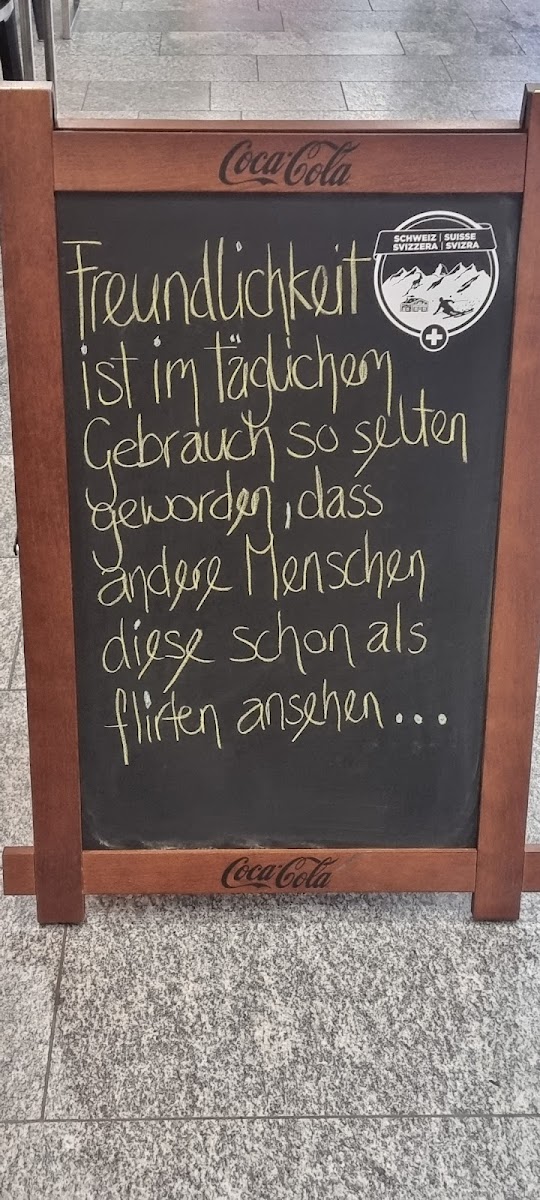 Coca-Cola
SCHWEIZ | SUISSE
SVIZZERA | SVIZRA
Freundlichkeit
ist im täglichem
Gebrauch so selten
geworden, dass
andere Menschen
diese schon als
flirten ansehen...
Coca-Cola